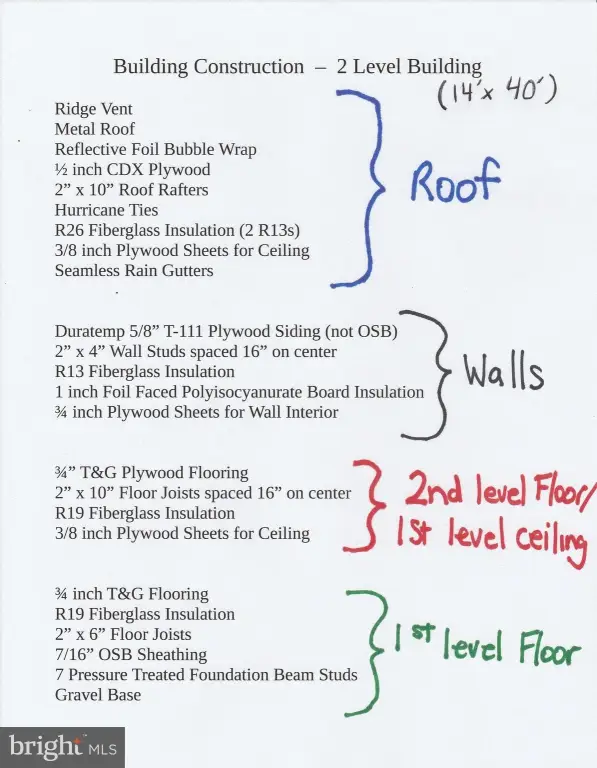 Building Construction – 2 Level Building
(14' x 40')
Ridge Vent
Metal Roof
Reflective Foil Bubble Wrap
½ inch CDX Plywood
2” x 10” Roof Rafters
Hurricane Ties
R26 Fiberglass Insulation (2 R13s)
3/8 inch Plywood Sheets for Ceiling
Seamless Rain Gutters
Roof
Duratemp 5/8” T-111 Plywood Siding (not OSB)
2” x 4” Wall Studs spaced 16” on center
R13 Fiberglass Insulation
1 inch Foil Faced Polyisocyanurate Board Insulation
¾ inch Plywood Sheets for Wall Interior
Walls
¾” T&G Plywood Flooring
2” x 10” Floor Joists spaced 16” on center
R19 Fiberglass Insulation
3/8 inch Plywood Sheets for Ceiling
2nd level Floor/
1st level ceiling
¾ inch T&G Flooring
R19 Fiberglass Insulation
2” x 6” Floor Joists
7/16” OSB Sheathing
7 Pressure Treated Foundation Beam Studs
Gravel Base
1st level Floor
bright MLS